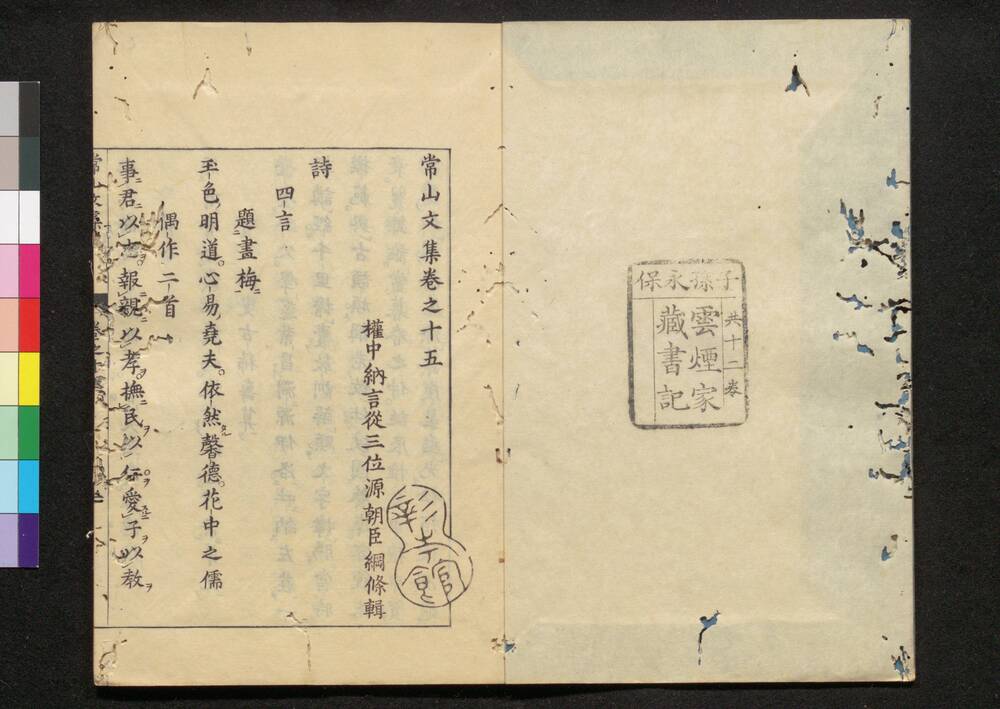 子孫永保
共十二卷
雲煙家
藏書記
常山文集卷之十五
權中納言從三位源朝臣綱條輯
彰考館
詩
四言
題畫梅
玉色明道心易堯夫依然馨德花中之儒
偶作二首
事君以忠報親以孝撫民以仁愛子以教
常山文集